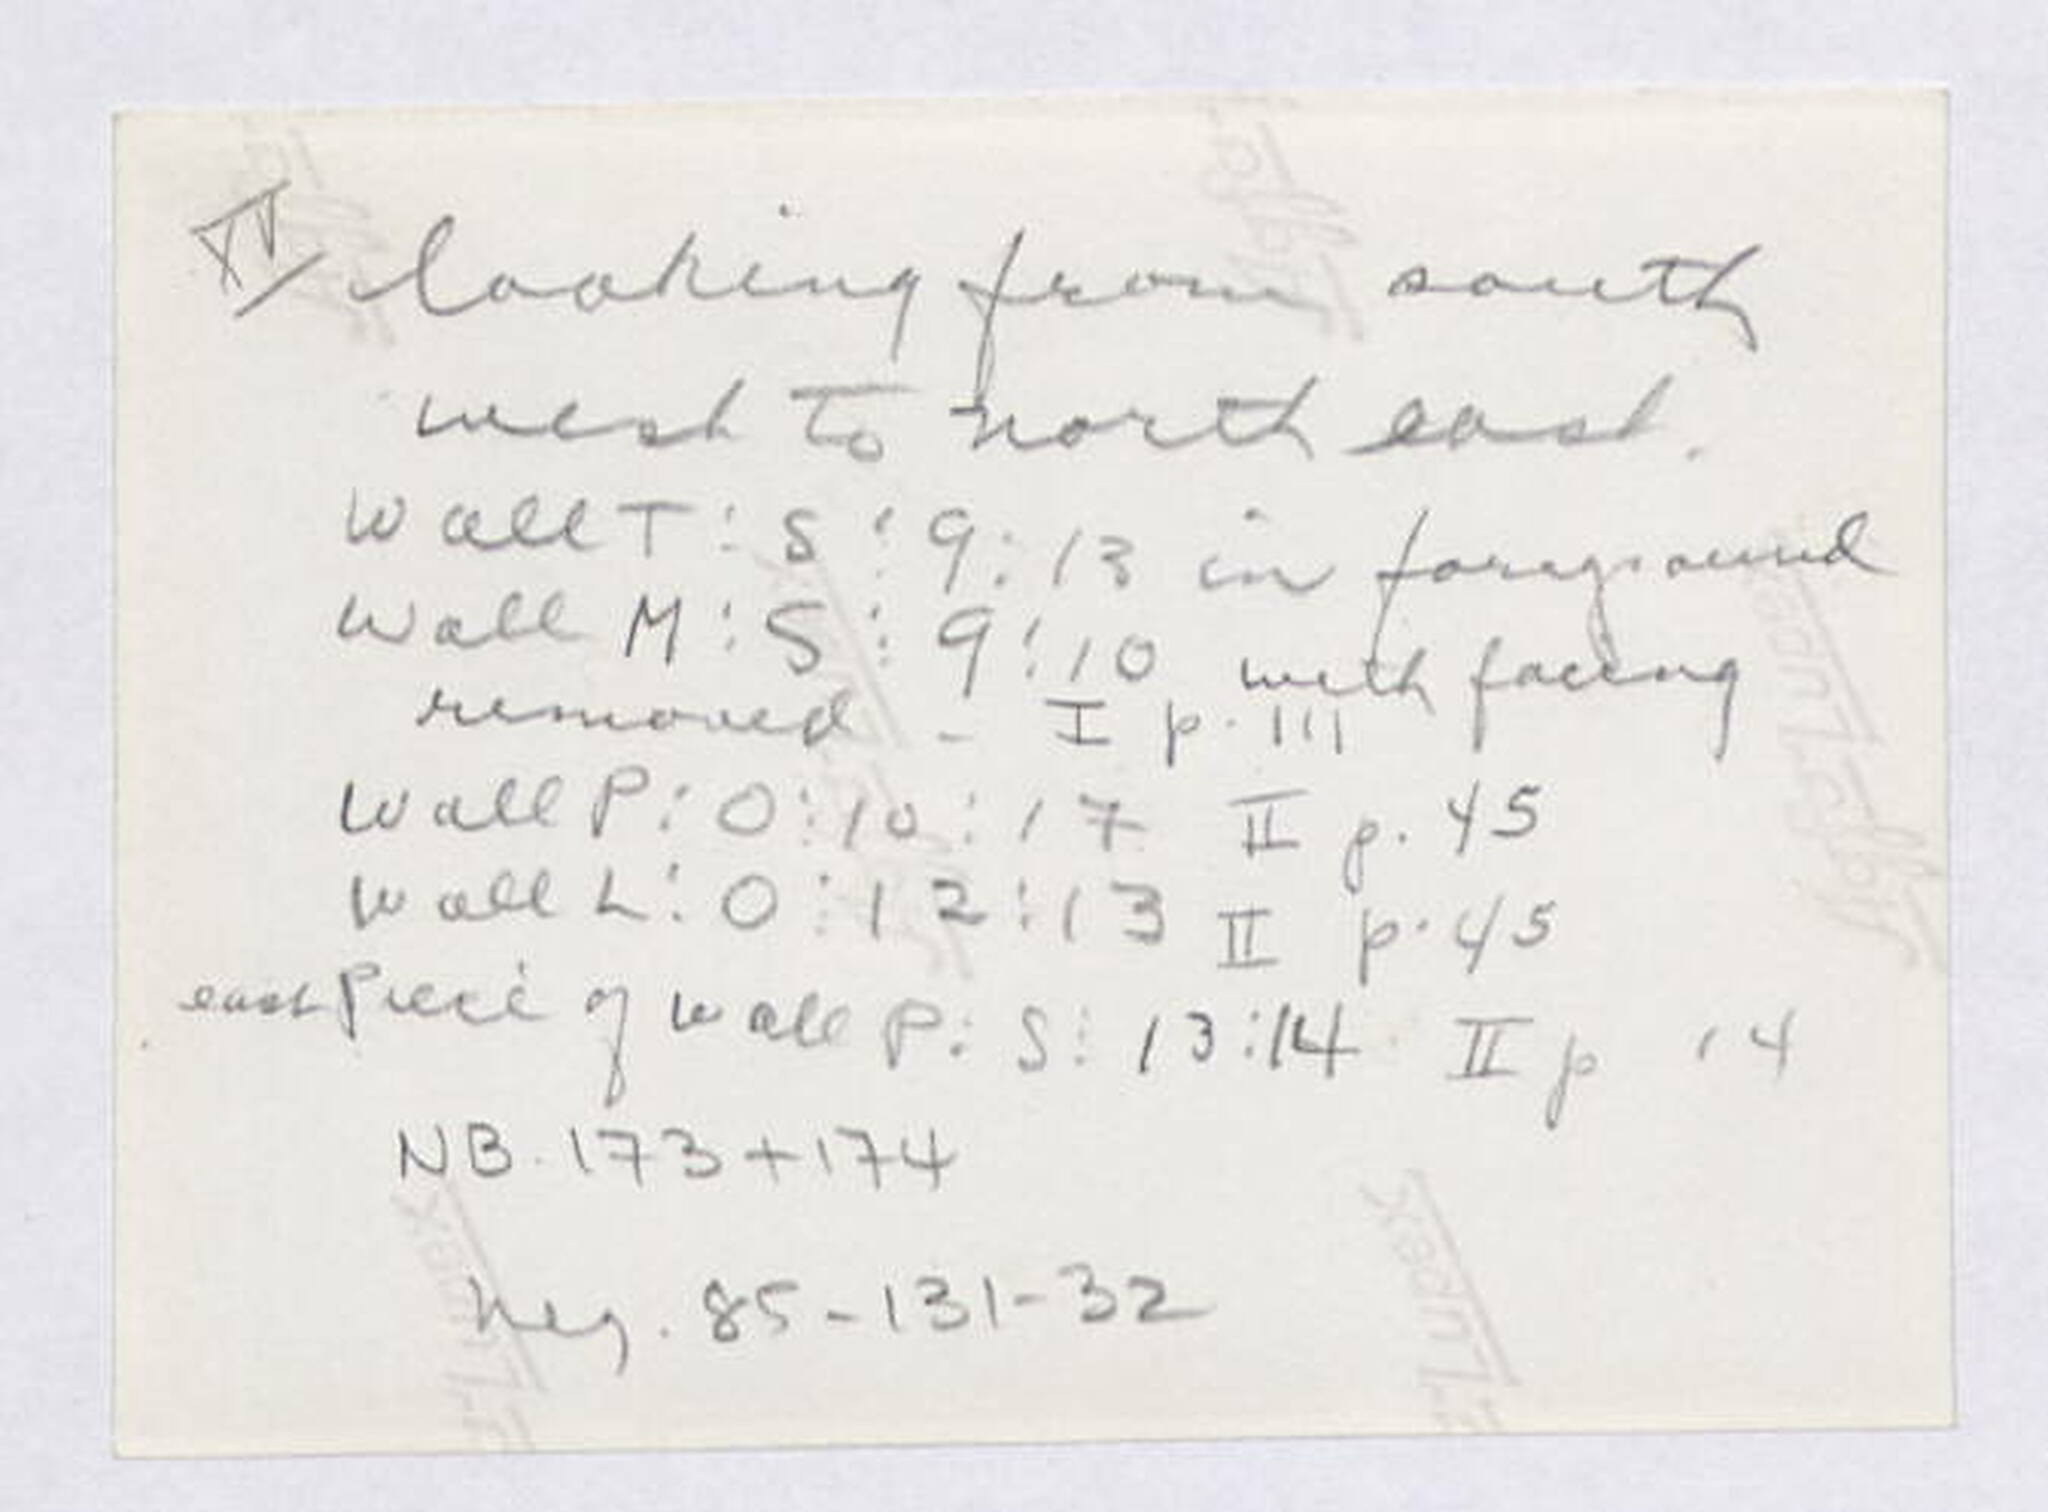 IV/ looking from south
west to north east.
Wall T:S:9:13 in foreground
Wall M:S:9:10 with facing
removed - I p. 111
Wall P:O:10:17 II p. 45
Wall L:O:12:13 II p. 45
east Piece of Wall P:S:13:14 II p 14
NB. 173+174
Neg. 85-131-32